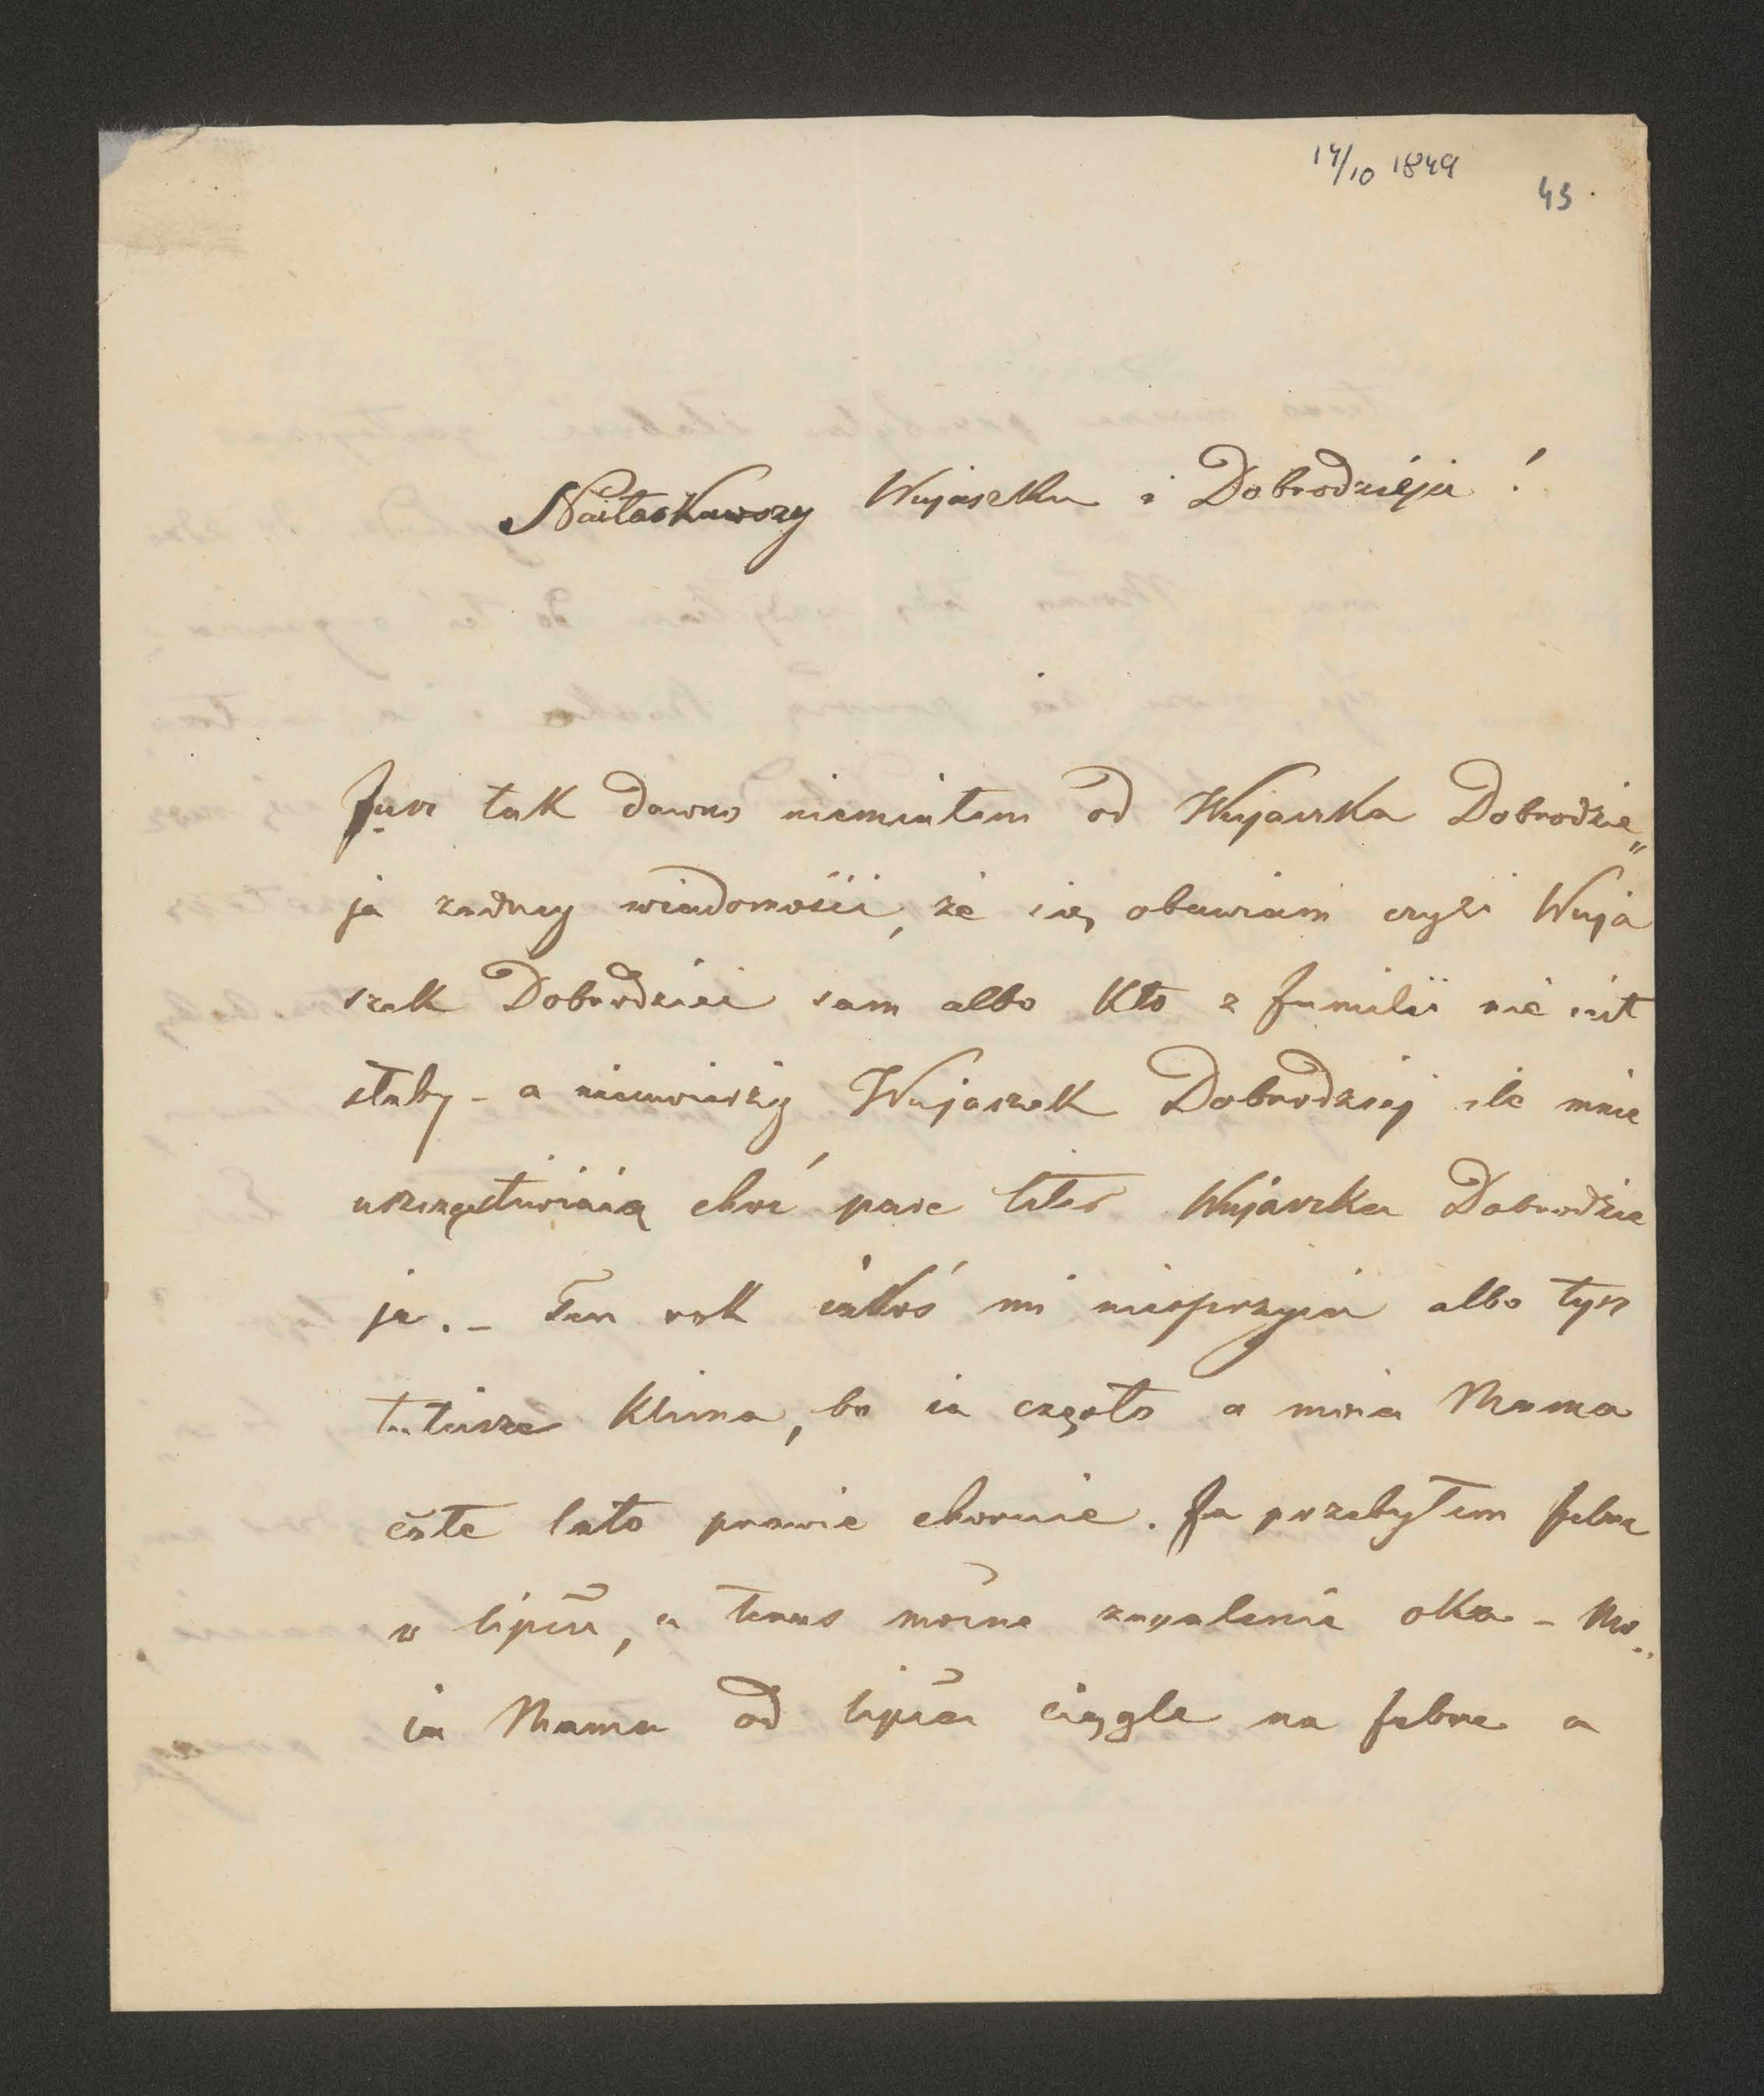 14/10 1849
43.
Naiłaskawszy Wujaszku i Dobrodzieju!
Jusz tak dawno niemiałem od Wujaszka Dobrodzie„
ja zadney wiadomości, że się obawiam czyli Wuja
szek Dobrodziei sam albo Kto z familii nie iest
słaby - a nieuwierzy Wujaszek Dobrodziej ile mnie
uszczęśliwiaią choć pare liter Wujaszka Dobrodzie
ja. - Ten rok iakoś mi niesprzyia albo tysz
tuteisze Klima, bo ia często a moia Mama
całe lato prawie choruie. Ja przebyłem febre
w lipcu, a teras mocne zapalenie oka - Mo„
ia Mama od lipca ciągle na febre a